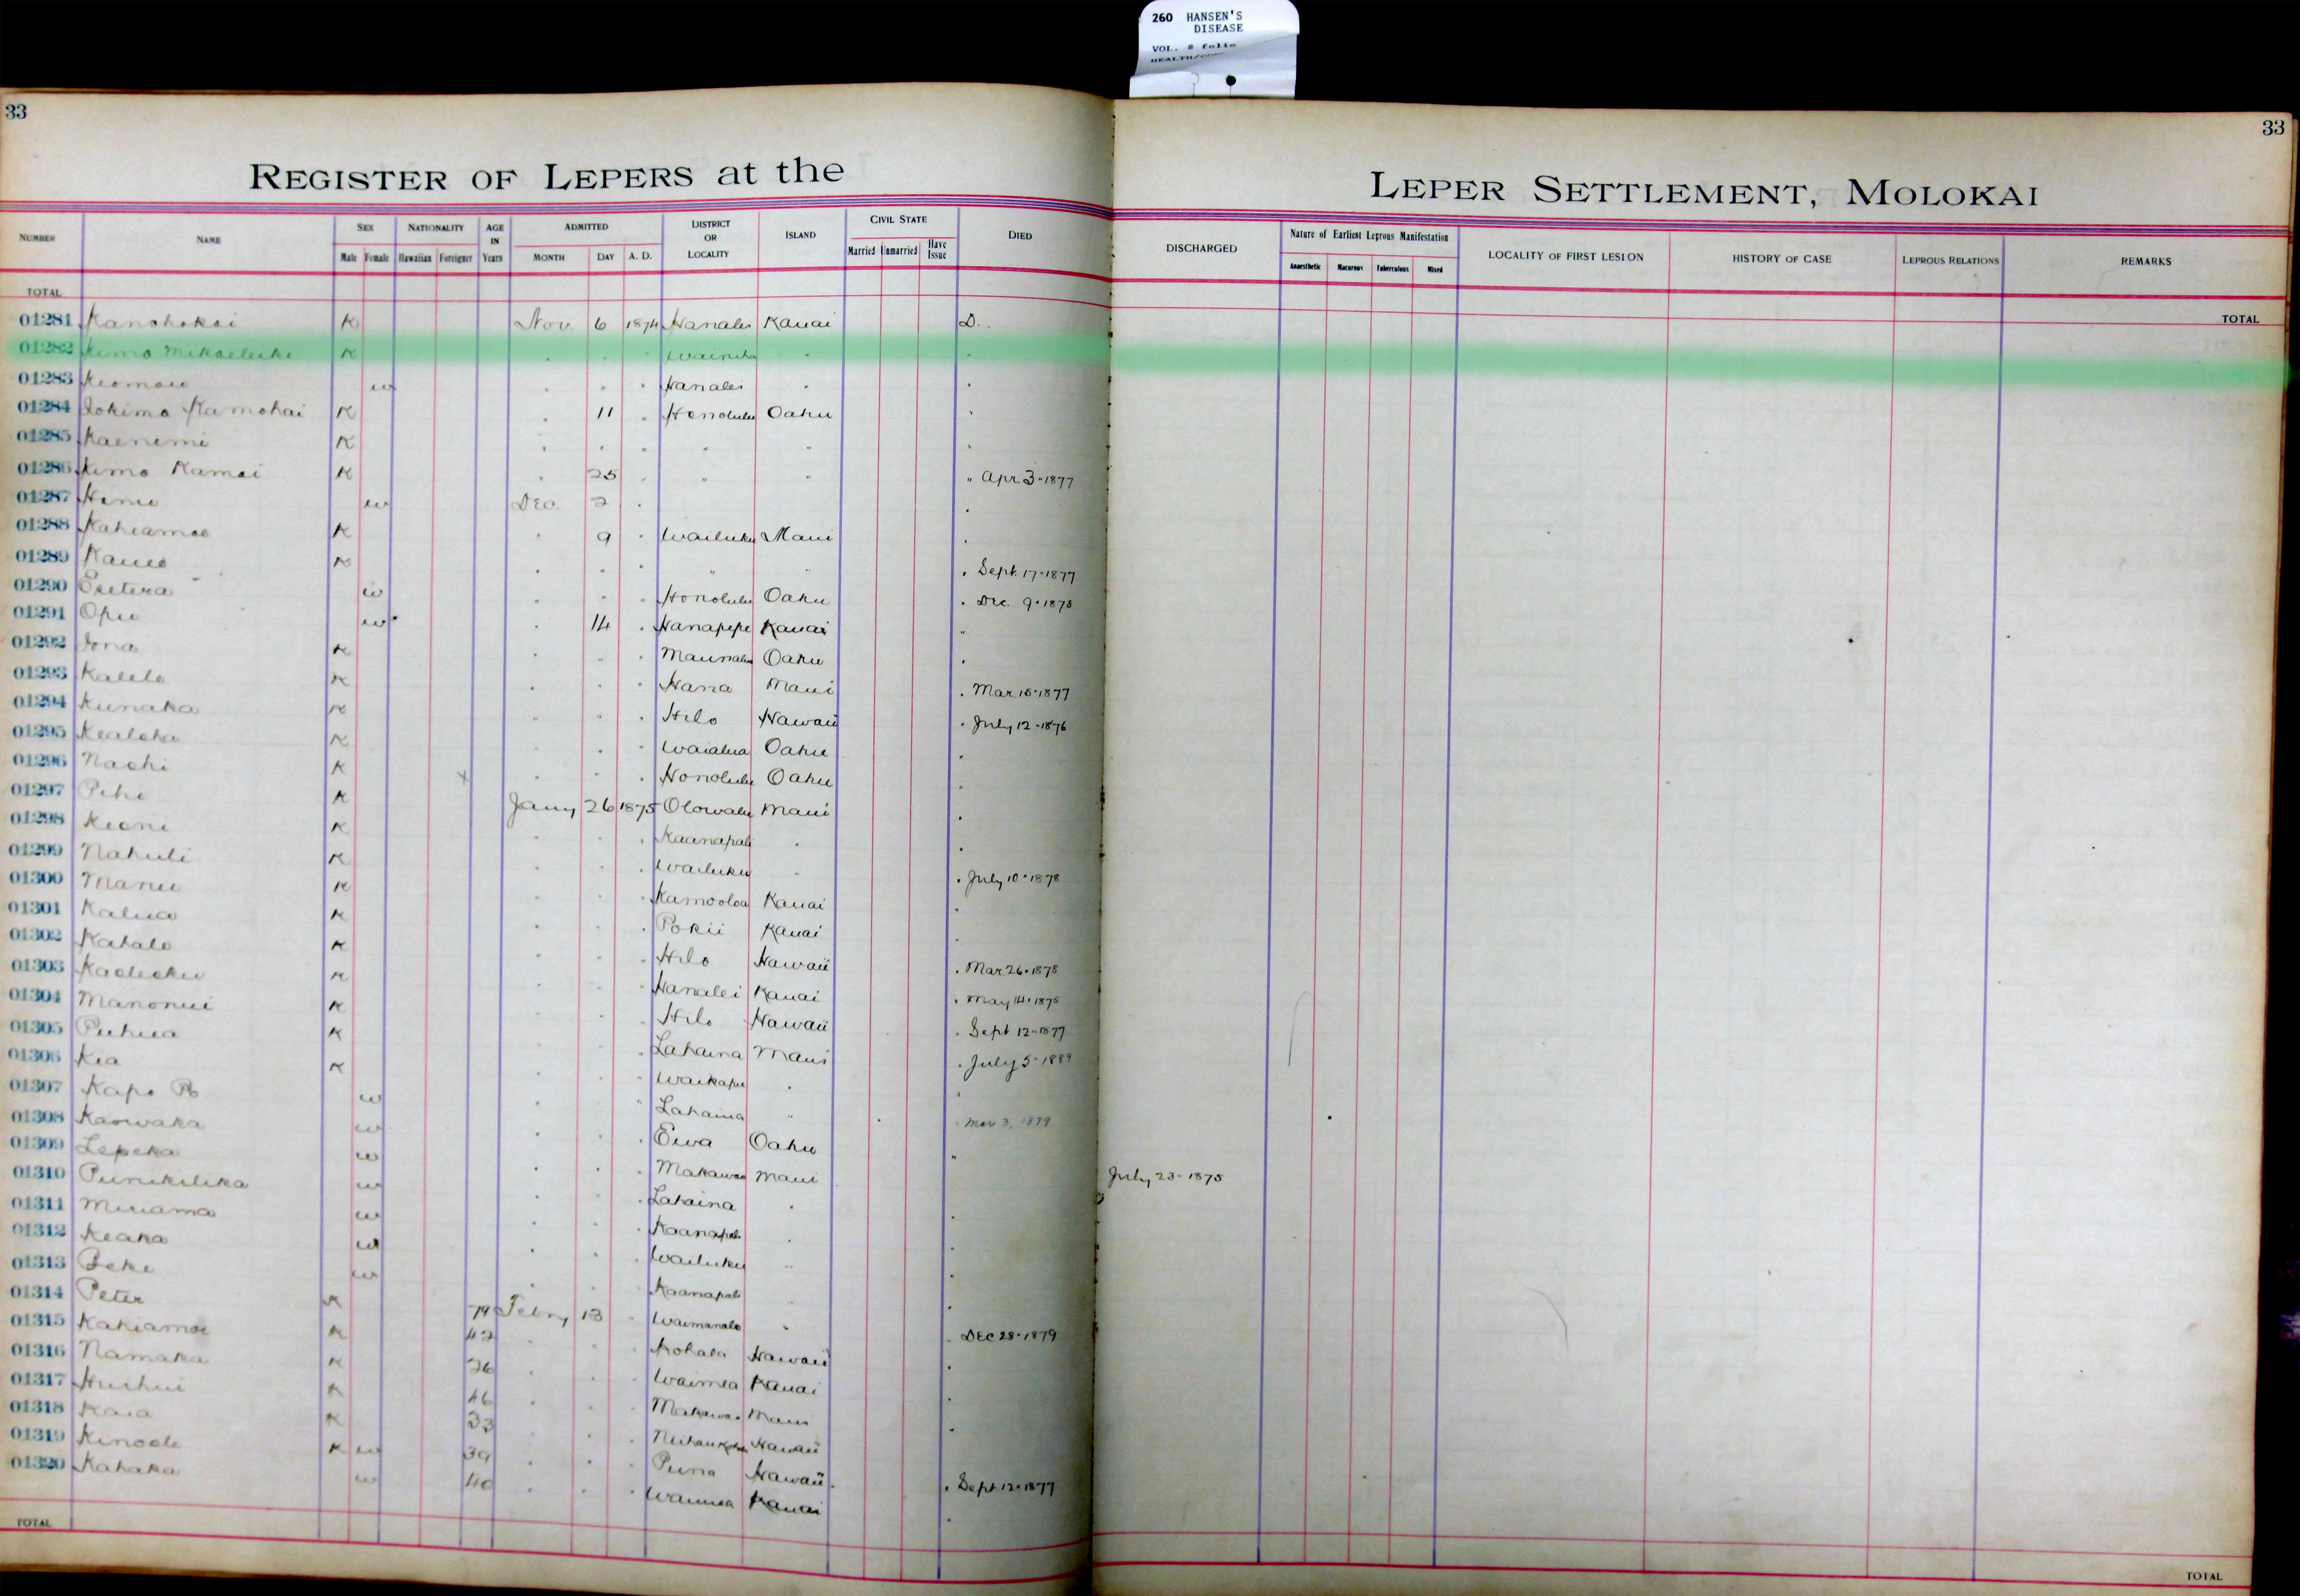 260 HANSEN'S
DISEASE
VOL. 8 folio
33
33
REGISTER OF LEPERS at the LEPER SETTLEMENT, MOLOKAI
NUMBER NAME SEX Male Female NATIONALITY Hawaiian Foreigner AGE IN Years ADMITTED MONTH DAY A. D. DISTRICT OR LOCALITY ISLAND CIVIL STATE Married Unmarried Have Issue DIED DISCHARGED Nature of Earliest Leprous Manifestation Anaesthetic Macurous Tuberculous Mixed LOCALITY OF FIRST LESION HISTORY OF CASE LEPROUS RELATIONS REMARKS
TOTAL TOTAL
01281 Kanohokai K Nov. 6 1874 Hanalei Kauai D.
01282 Kimo Mikaeleke K " " " Wainiha " "
01283 Keomau w " " " Hanalei " "
01284 Iokimo Kamohai K " 11 " Honolulu Oahu "
01285 Kaenemi K " " " " " "
01286 Kimo Kamai K " 25 " " " " Apr 3-1877
01287 w Dec. 2 " "
01288 Kahiamoe K " 9 " Wailuku Maui "
01289 Kaueo K " " " " " " Sept. 17-1877
01290 Esetera w " " " Honolulu Oahu " Dec. 9-1878
01291 Opu w " 14 " Hanapepe Kauai "
01292 Iona K " " " Maunalua Oahu "
01293 Kalele K " " " Hana Maui " Mar 15-1877
01294 Kunaka K " " " Hilo Hawaii " July 12-1876
01295 Kealoha K " " " Waialua Oahu "
01296 Naohi K + " " " Honolulu Oahu "
01297 Pihi K Jany 26 1875 Olowalu Maui "
01298 Keoni K " " " Kaanapali " "
01299 Nahuli K " " " Wailuku " " July 10-1878
01300 Manu K " " " Kamooloa Kauai "
01301 Kalua K " " " Pokii Kauai "
01302 Kahale K " " " Hilo Hawaii " Mar 26-1878
01303 K " " " Hanalei Kauai " May 14-1875
01304 Manonui K " " " Hilo Hawaii " Sept 12-1877
01305 Puhua K " " " Lahaina Maui " July 5-1889
01306 Kia K " " " Waikapu " "
01307 Kapo w " " " Lahaina " " Mar 3, 1879
01308 Kaowaka w " " " Ewa Oahu "
01309 Lepeka w " " " Makawao Maui July 23-1875
01310 Punikilika w " " " Lahaina " "
01311 Miriama w " " " Kaanapali " "
01312 Keaka w " " " Wailuku " "
01313 Beke w " " " Kaanapali " "
01314 Peter K 79 Febry 13 " Waimanalo " " Dec 28-1879
01315 Kahiamoe K 42 " " " Kohala Hawaii "
01316 Namaka K 26 " " " Waimea Kauai "
01317 Huihui K 46 " " " Makawao Maui "
01318 Kaia K 33 " " " Hawaii
01319 Kinoole K w 39 " " " Puna Hawaii " Sept 12-1877
01320 Kahaka w 40 " " " Waimea Kauai "
TOTAL TOTAL